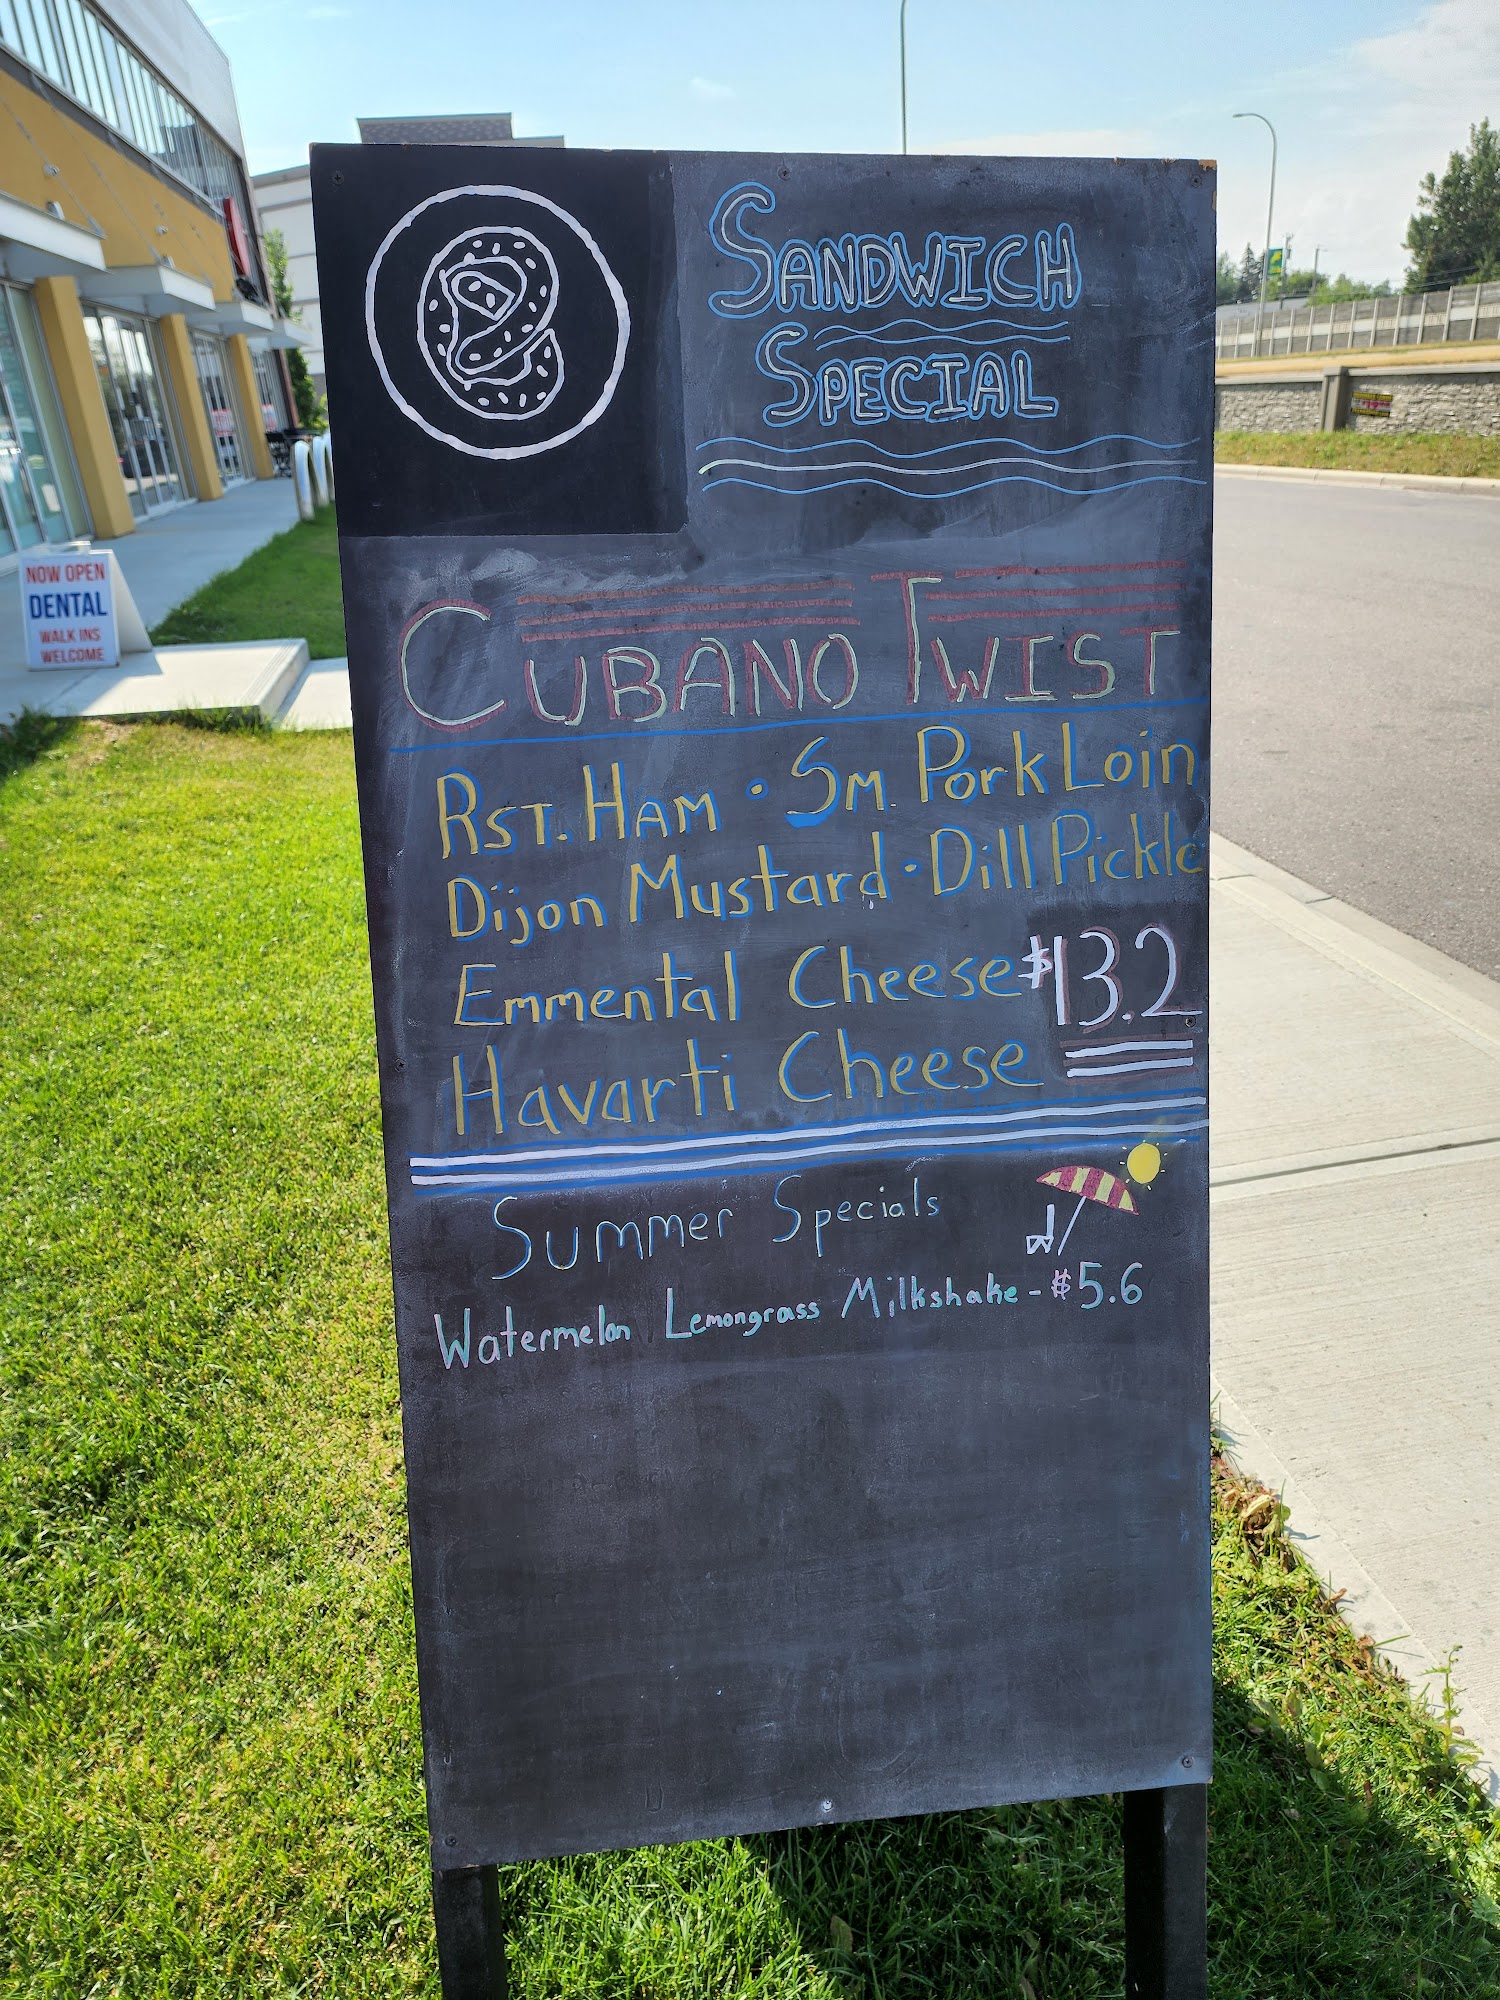 SANDWICH
SPECIAL
CUBANO TWIST
RST. HAM • SM. Pork Loin
Dijon Mustard • Dill Pickle
Emmental Cheese $13.2
Havarti Cheese
Summer Specials
Watermelon Lemongrass Milkshake - $5.6
NOW OPEN
DENTAL
WALK INS
WELCOME